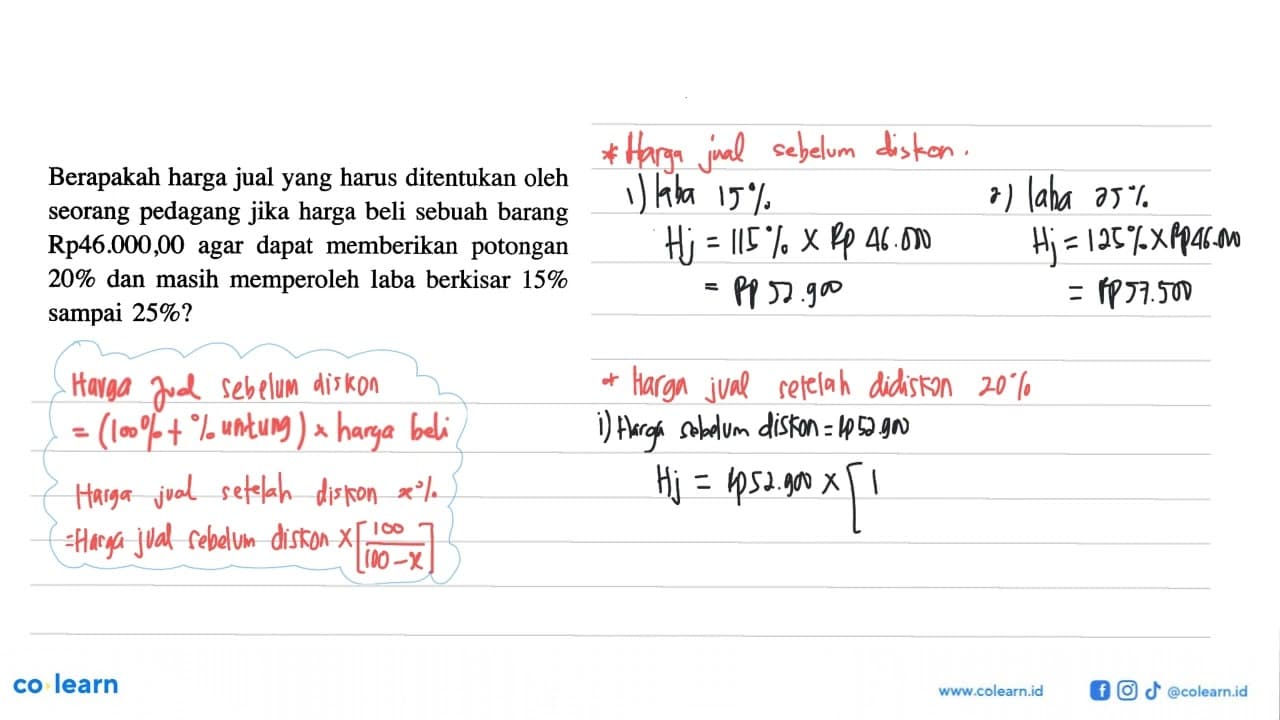 Berapakah harga jual yang harus ditentukan oleh
seorang pedagang jika harga beli sebuah barang
Rp46.000,00 agar dapat memberikan potongan
20% dan masih memperoleh laba berkisar 15%
sampai 25%?
Harga jual sebelum diskon
= (100% + % untung) x harga beli
Harga jual setelah diskon x%
= Harga jual sebelum diskon x [100/100-x]
* Harga jual sebelum diskon.
1) laba 15%
Hj = 115% x Rp 46.000
= Rp 52.900
2) laba 25%
Hj = 125% x Rp46.000
= Rp57.500
* Harga jual setelah didiskon 20%
1) Harga sebelum diskon = Rp52.900
Hj = Rp52.900 x [1
co learn
www.colearn.id
@colearn.id